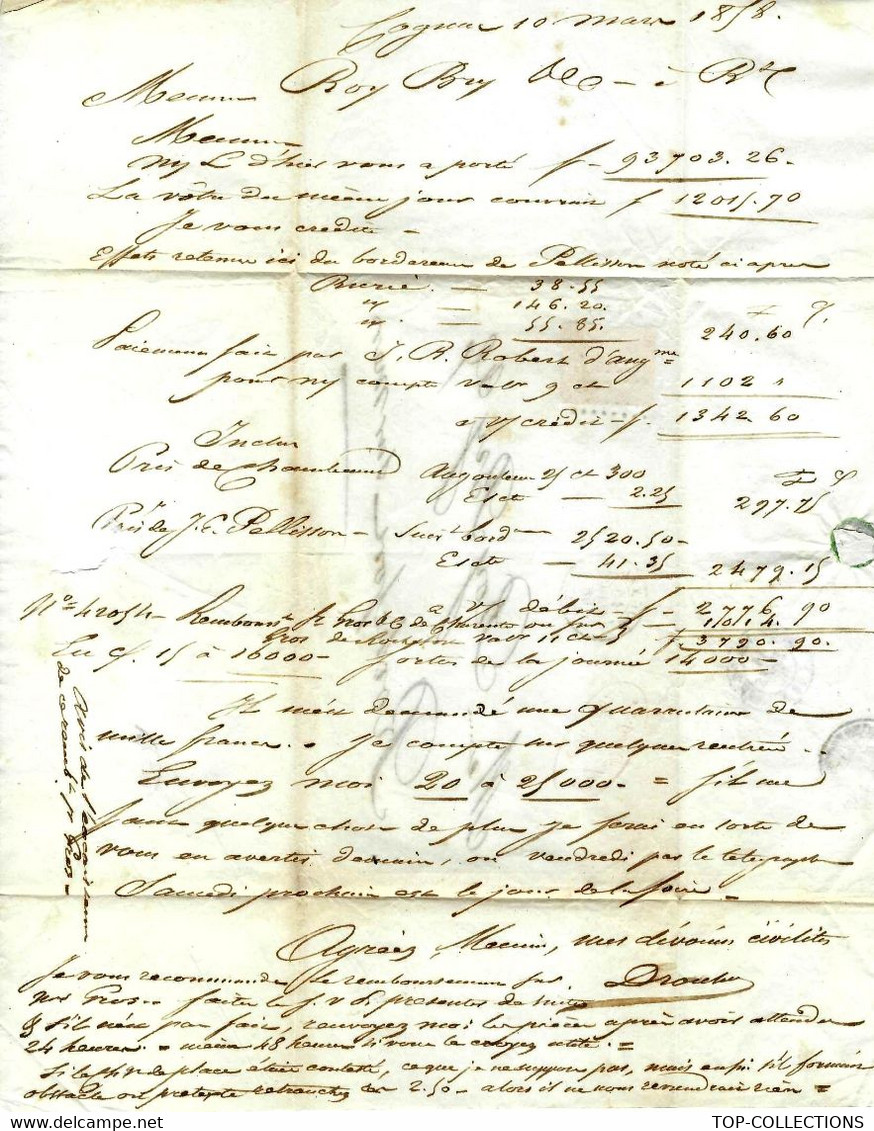 Cognac 10 mars 1858.
Messieurs Roy Bry & Cie à
Messieurs
Ma L d'hier vous a porté f - 93703.26 -
La vôtre du même jour couvrait f 12015.70
Je vous crédite -
Effets retenus ici du bordereau de Pellisson noté ci après
Burie. — 38.55
" — 146.20.
" — 55.85. 240.60
Paiement fait par J. R. Robert d'Angme
pour compte valr 9 ct 1102 "
crédit - f. 1342.60
Inclus
Pris de Chambeaud Angoulême 25 ct 300
Escte — 2.25 297.75
Pris de J. C. Pellisson - bordn 2520.50 -
Escte — 41.35 2479.15
à v/ débit - f - 2776.90
No 42054 - Remboursт de Charente ou — 1014.
valr 11 ct f 3790.90.
En C/. 15 à 16000 - Sorties de la journée 14000 -
Il m'est demandé une quarantaine de
mille francs. - Je compte sur quelques rentrées. -
Envoyez moi 20 à 25000 - = S'il me
faut quelque chose de plus je ferai en sorte de
vous en avertir demain, ou vendredi par le télégraphe
Samedi prochain est le jour de la foire -
Agréez, Messieurs, mes dévoués civilités
Je vous recommande le remboursement sur
nos Gros - faites le présenter de suite
& s'il n'est pas fait, renvoyez moi les pièces après avoir attendu
24 heures. = même 48 heures si vous le croyez utile. =
Si le de place était contesté, ce que je ne suppose pas, mais enfin s'il formait
obstacle ou prétexte retranchez ces 2.50 - alors il ne nous reviendrait rien =
TOP-COLLECTIONS